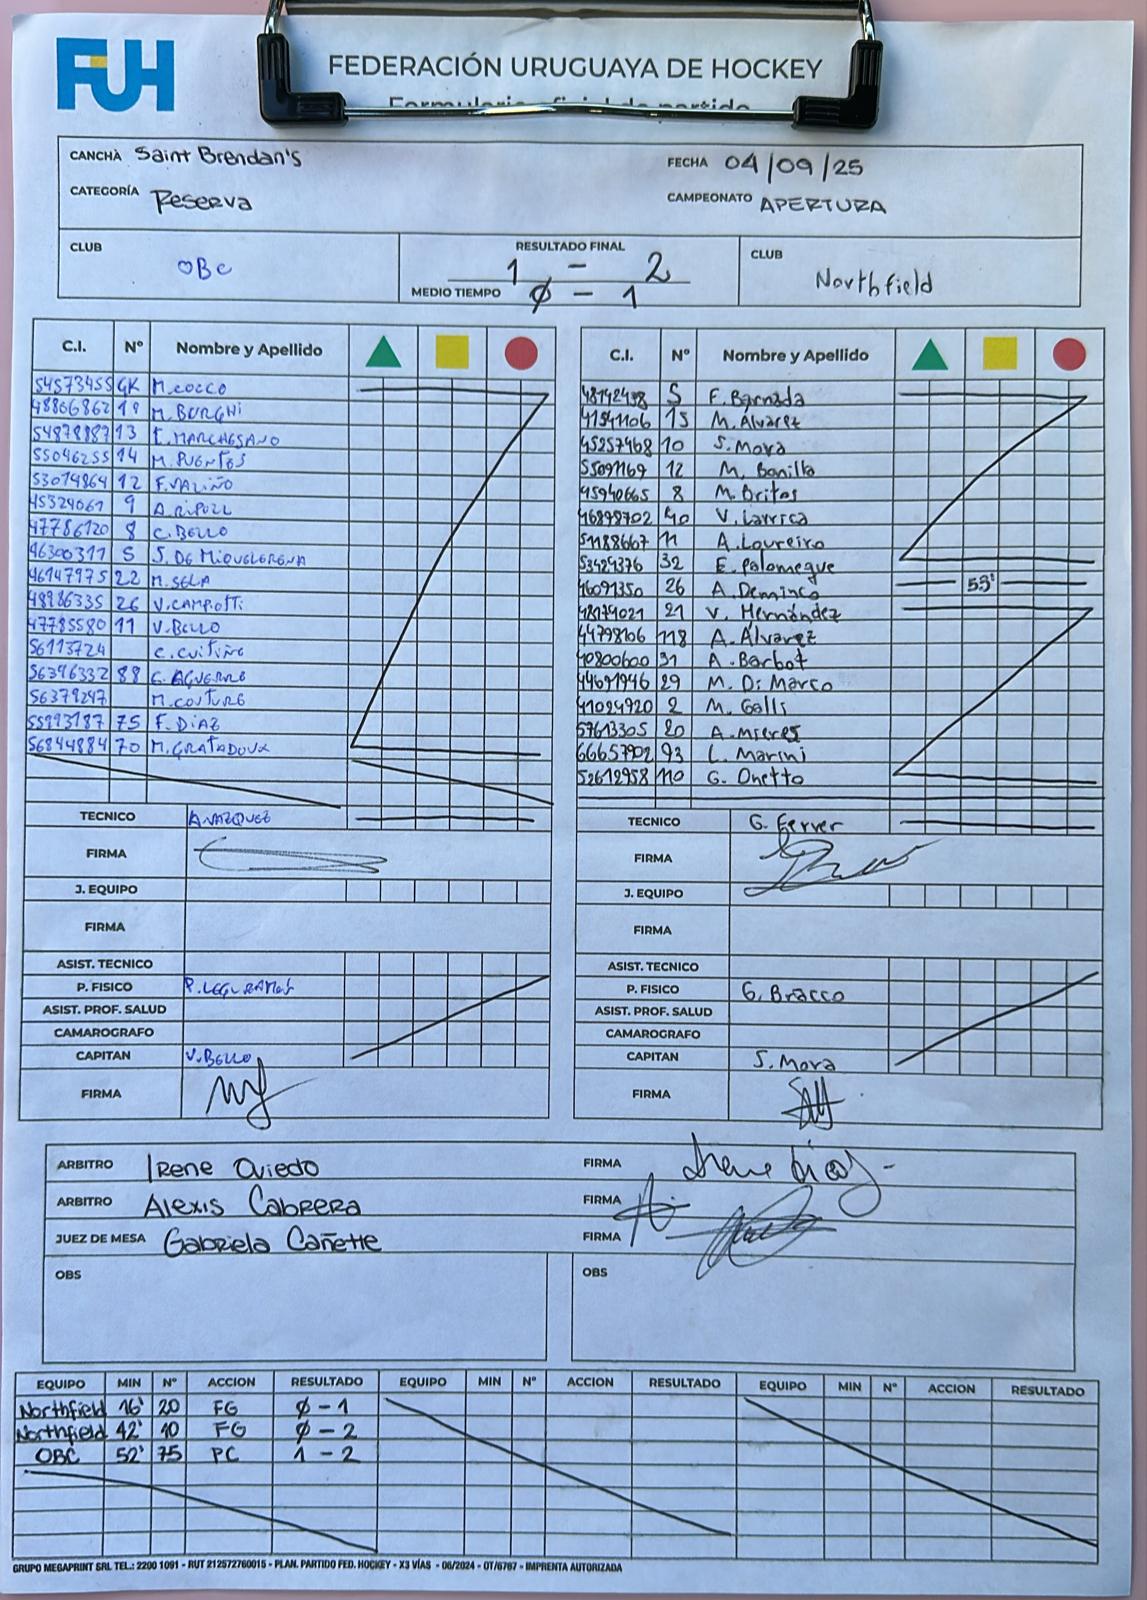 FUH
FEDERACIÓN URUGUAYA DE HOCKEY
CANCHA Saint Brendan's FECHA 04/09/25
CATEGORÍA Reserva CAMPEONATO APERTURA
CLUB OBC RESULTADO FINAL 1 - 2 CLUB Northfield
MEDIO TIEMPO Ø - 1
C.I. Nº Nombre y Apellido
54573455 GK M. COCCO
48866862 M. BORGHI
54878887 13 MARCHESANO
55046255 14 M. PUENTES
53014864 12 F. VALIÑO
45324061 9 A. RIPOLL
47786120 8 C. BELLO
46300311 5 S. DE MIQUELERENA
46147975 22 M. SELA
48986335 26 V. CAMPOTTI
47785580 11 V. BELLO
56113724 C. CUITIÑO
56396332 88 AGUERRE
56379247 M. COUTURE
55993187 75 F. DIAZ
56844884 70 M. GRATADOUX
TECNICO A. VAZQUEZ
FIRMA
J. EQUIPO
FIRMA
ASIST. TECNICO
P. FISICO
ASIST. PROF. SALUD
CAMAROGRAFO
CAPITAN V. BELLO
FIRMA
C.I. Nº Nombre y Apellido
5 F. Barnada
41541106 15 M. Álvarez
45257468 10 S. Mora
55091169 12 M. Bonilla
45940665 8 M. Britos
46898702 40 V. Larrica
51188667 11 A. Loureiro
53429376 32 E. Palomeque
46091350 26 A. Deminco 53'
48179021 21 V. Hernández
44798106 118 A. Álvarez
40800600 31 A. Barbot
44691946 29 M. Di Marco
41024920 2 M. Galli
57613305 20 A. Mieres
66657902 93 L. Marini
52612958 110 G. Onetto
TECNICO G. Ferrer
FIRMA
J. EQUIPO
FIRMA
ASIST. TECNICO
P. FISICO G. Bracco
ASIST. PROF. SALUD
CAMAROGRAFO
CAPITAN S. Mora
FIRMA
ARBITRO Irene Oviedo FIRMA
ARBITRO Alexis Cabrera FIRMA
JUEZ DE MESA Gabriela Cañette FIRMA
OBS OBS
EQUIPO MIN Nº ACCION RESULTADO EQUIPO MIN Nº ACCION RESULTADO EQUIPO MIN Nº ACCION RESULTADO
Northfield 16' 20 FG Ø - 1
Northfield 42' 10 FG Ø - 2
OBC 52' 75 PC 1 - 2
GRUPO MEGAPRINT SRL TEL.: 2200 1091 - RUT 212572760015 - PLAN. PARTIDO FED. HOCKEY - X3 VÍAS - 06/2024 - OT/6767 - IMPRENTA AUTORIZADA